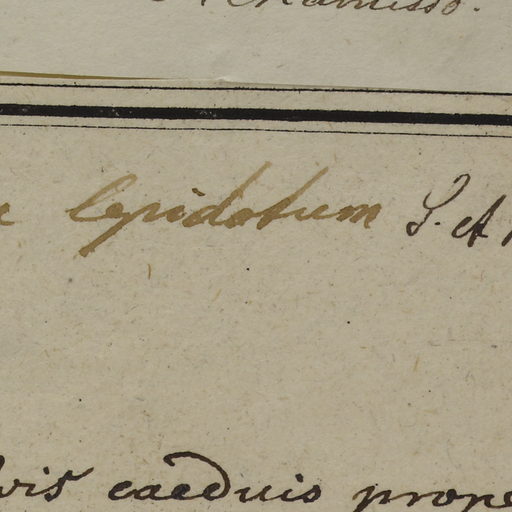 Chamisso.
lepidotum S. et
caeduis prope